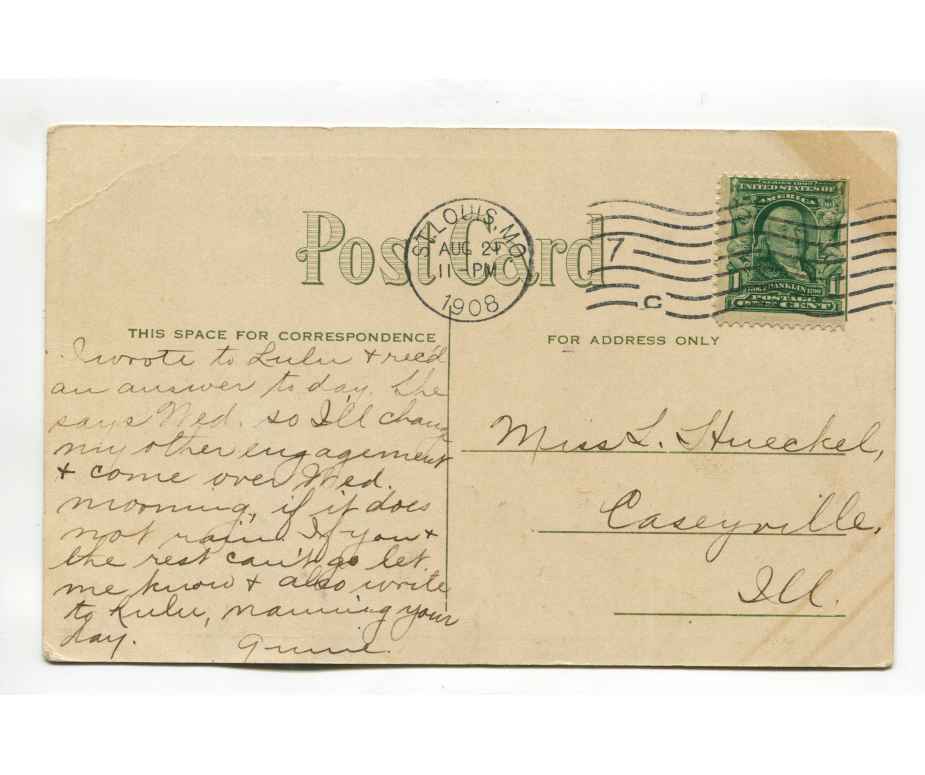 Post Card
ST. LOUIS, MO.
AUG 21
11 PM
1908
7
C
SERIES 1902
UNITED STATES OF
AMERICA
FRANKLIN
POSTAGE
ONE CENT
THIS SPACE FOR CORRESPONDENCE
FOR ADDRESS ONLY
I wrote to Lulu & rec'd
an answer to day. She
says Wed. so I'll change
my other engagement
& come over Wed.
morning, if it does
not rain. If you &
the rest can't go let
me know & also write
to Lulu, naming your
day.
Miss L. Hueckel,
Caseyville,
Ill.